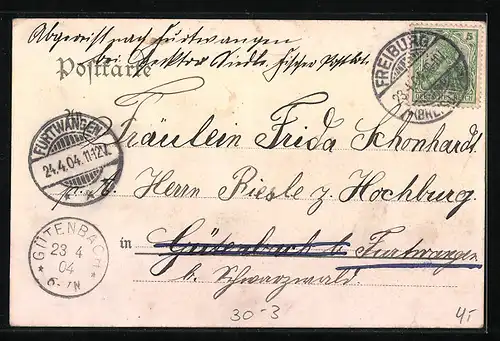 Abgereist nach Furtwangen
bei Doktor
Postkarte
FREIBURG
23
(BREISGAU)
5
FURTWANGEN
24.4.04. 11-12V.
Fräulein Frida Schonhardt
Herrn Riesle z. Hochburg.
GÜTENBACH
23 4
04
6-7N
in Gütenbach b. Furtwangen
b. Schwarzwald.
30-3
4,-